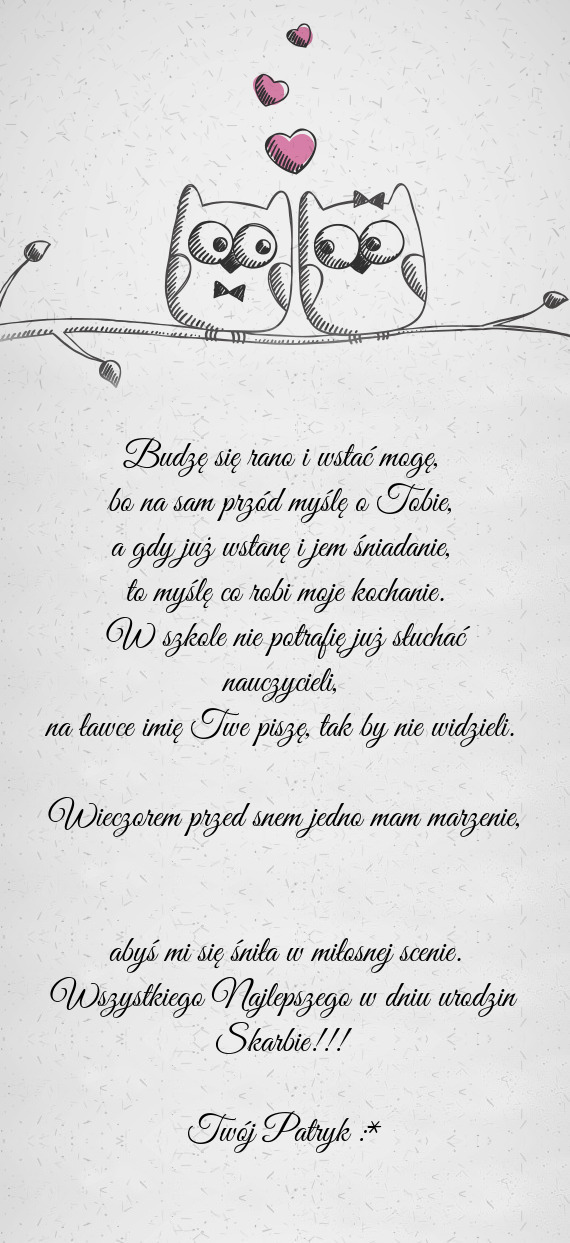 Budzę się rano i wstać mogę,
bo na sam przód myślę o Tobie,
a gdy już wstanę i jem śniadanie,
to myślę co robi moje kochanie.
W szkole nie potrafię już słuchać
nauczycieli,
na ławce imię Twe piszę, tak by nie widzieli.
Wieczorem przed snem jedno mam marzenie,
abyś mi się śniła w miłosnej scenie.
Wszystkiego Najlepszego w dniu urodzin
Skarbie!!!
Twój Patryk :*